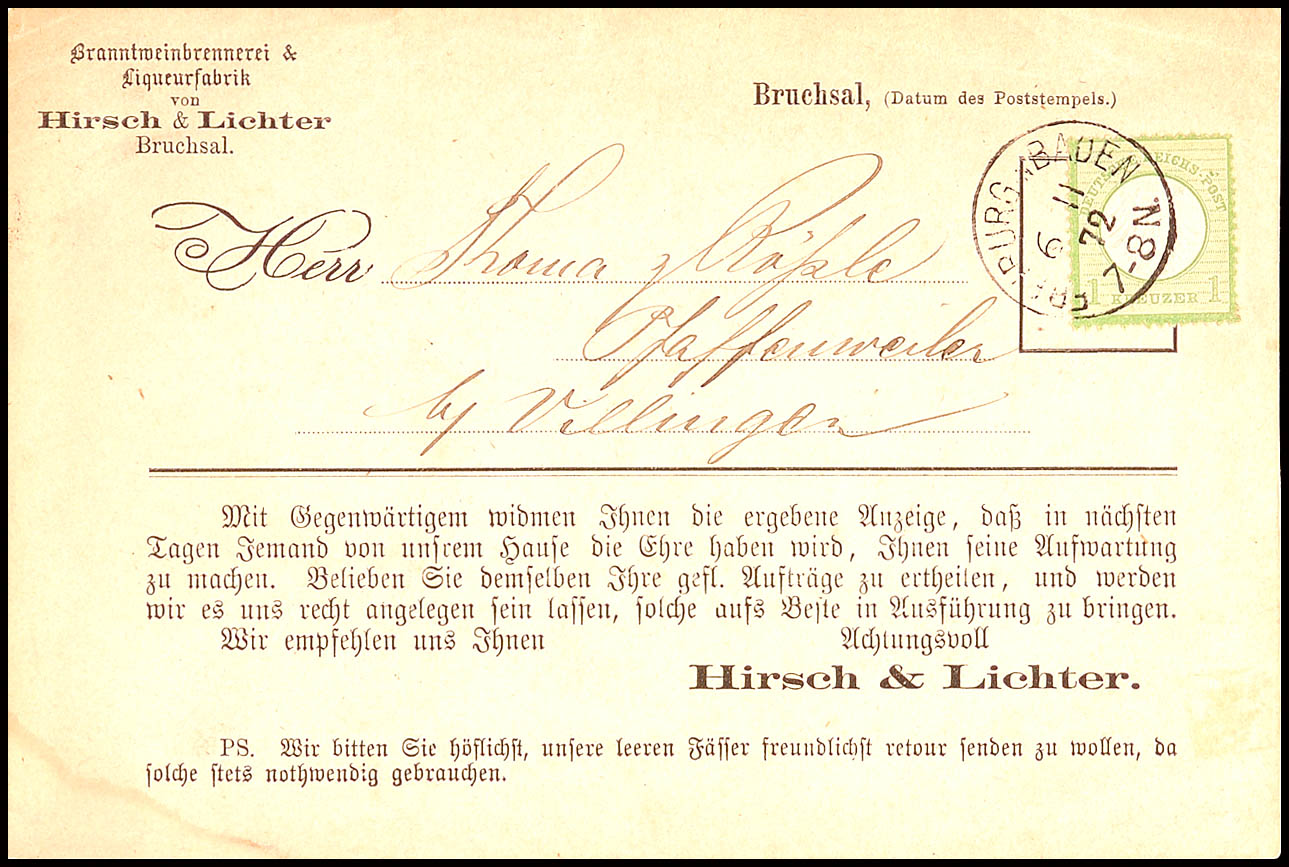 Branntweinbrennerei &
Liqueurfabrik
von
Hirsch & Lichter
Bruchsal.
Bruchsal, (Datum des Poststempels.)
DEUTSCHE REICHS-POST
1 KREUZER 1
BADEN
6 11
72
7-8 N.
Herr Thoma z Rößle
Pfaffenweiler
by Villingen
Mit Gegenwärtigem widmen Ihnen die ergebene Anzeige, daß in nächsten
Tagen Jemand von unsrem Hause die Ehre haben wird, Ihnen seine Aufwartung
zu machen. Belieben Sie demselben Ihre gefl. Aufträge zu ertheilen, und werden
wir es uns recht angelegen sein lassen, solche aufs Beste in Ausführung zu bringen.
Wir empfehlen uns Ihnen Achtungsvoll
Hirsch & Lichter.
PS. Wir bitten Sie höflichst, unsere leeren Fässer freundlichst retour senden zu wollen, da
solche stets nothwendig gebrauchen.